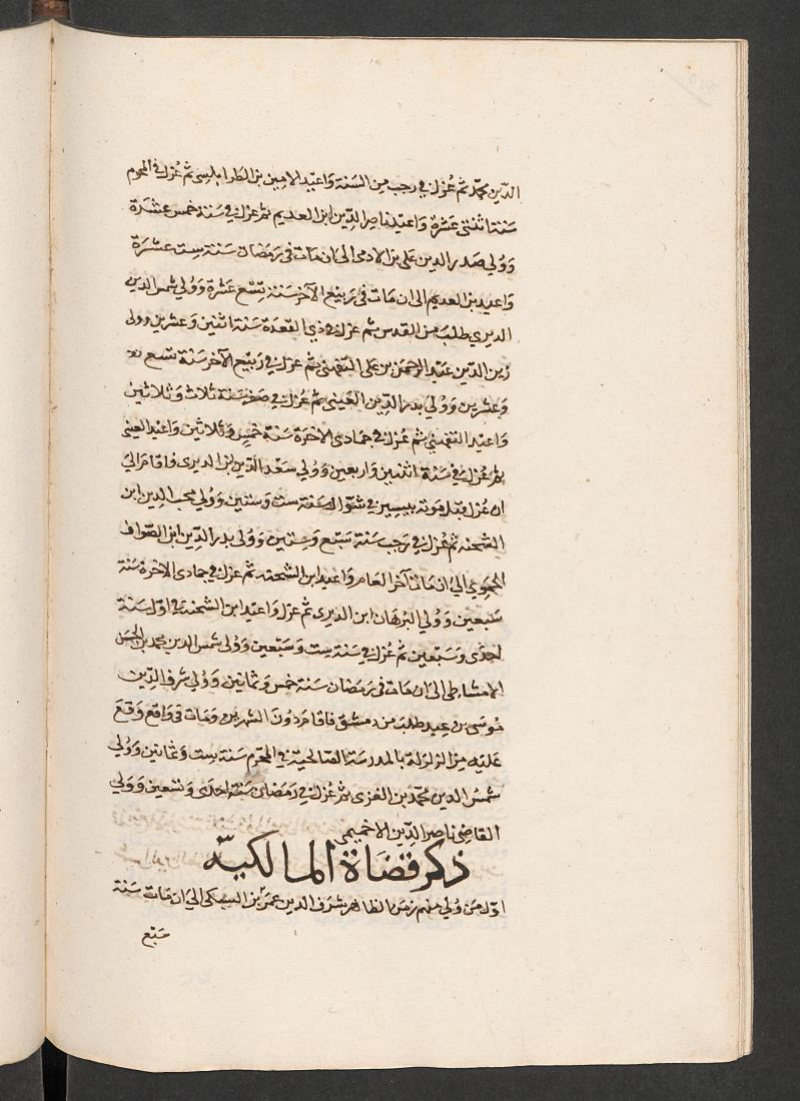 الدين محمد ثم عزل في رجب من السنة واعيد الامين بن الطرابلسى ثم عزل في المحرم
سنة اثنتى عشرة واعيد ناصر الدين ابن العديم ثم عزل في سنة خمس عشرة
وولي صدر الدين على بن الادمى الى ان مات في رمضان سنة ست عشرة
واعيد بن العديم الى ان مات في ربيع الآخر سنة تسع عشرة وولي شمس الدين
الديري طلب من القدس ثم عزل في ذي القعدة سنة اثنين وعشرين وولى
زين الدين عبد الرحمن بن على التفهنى ثم عزل في ربيع الآخر سنة تسع
وعشرين وولي بدر الدين العينى ثم عزل في صفر سنة ثلاث وثلاثين
واعيد التفهني ثم عزل في جمادى الاخرة سنة خمس وثلاثين واعيد العينى
ثم عزل في سنة اثنين واربعين وولي سعد الدين ابن الديرى فاقام الى
ان عزل قبل موته بيسير في شوال سنة ست وستين وولي محب الدين ابن
الشحنه ثم عزل في رجب سنة سبع وستين وولى بدر الدين ابن الصواف
الحموي الي ان مات آخر العام واعيد ابن الشحنه ثم عزل في جمادى الاخرة سنة
سبعين وولي البرهان ابن الديرى ثم عزل واعيد ابن الشحنة في اول سنة
احدى وسبعين ثم عزل في سنة ست وسبعين وولى شمس الدين محمد بن الحسن
الامشاطى الى ان مات في رمضان سنة خمس وثمانين وولي شرف الدين
موسى بن عيد طلب من دمشق فاقام دون الشهرين ومات في واقع وقع
عليه من الزلزلة بالمدرسة الصالحية في المحرم سنة ست وثمانين وولي
شمس الدين محمد بن الغزى ثم عزل في رمضان سنة احدى وتسعين وولي
القاضى ناصر الدين الاخميمى
ذكر قضاة المالكيه
اول من ولي منهم زمن الظاهر شرف الدين عمر بن السبكى الي ان مات سنة